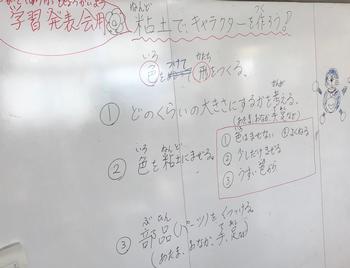 学習発表会用
なんど つく
粘土で、キャラクターを作ろう!
いろ つけて かたち
色を 形をつくる。
かんが
① どのくらいの大きさにするかを考える。
(あたま、おなか、手、足など)
いろ ねんど
② 色を粘土にまぜる。
① 色はまぜない ④よくねる
② 少しだけまぜる
③ うすい色から
ぶ ひん
③ 部品(パーツ)をくっつける。
(あたま、おなか、手、足など)